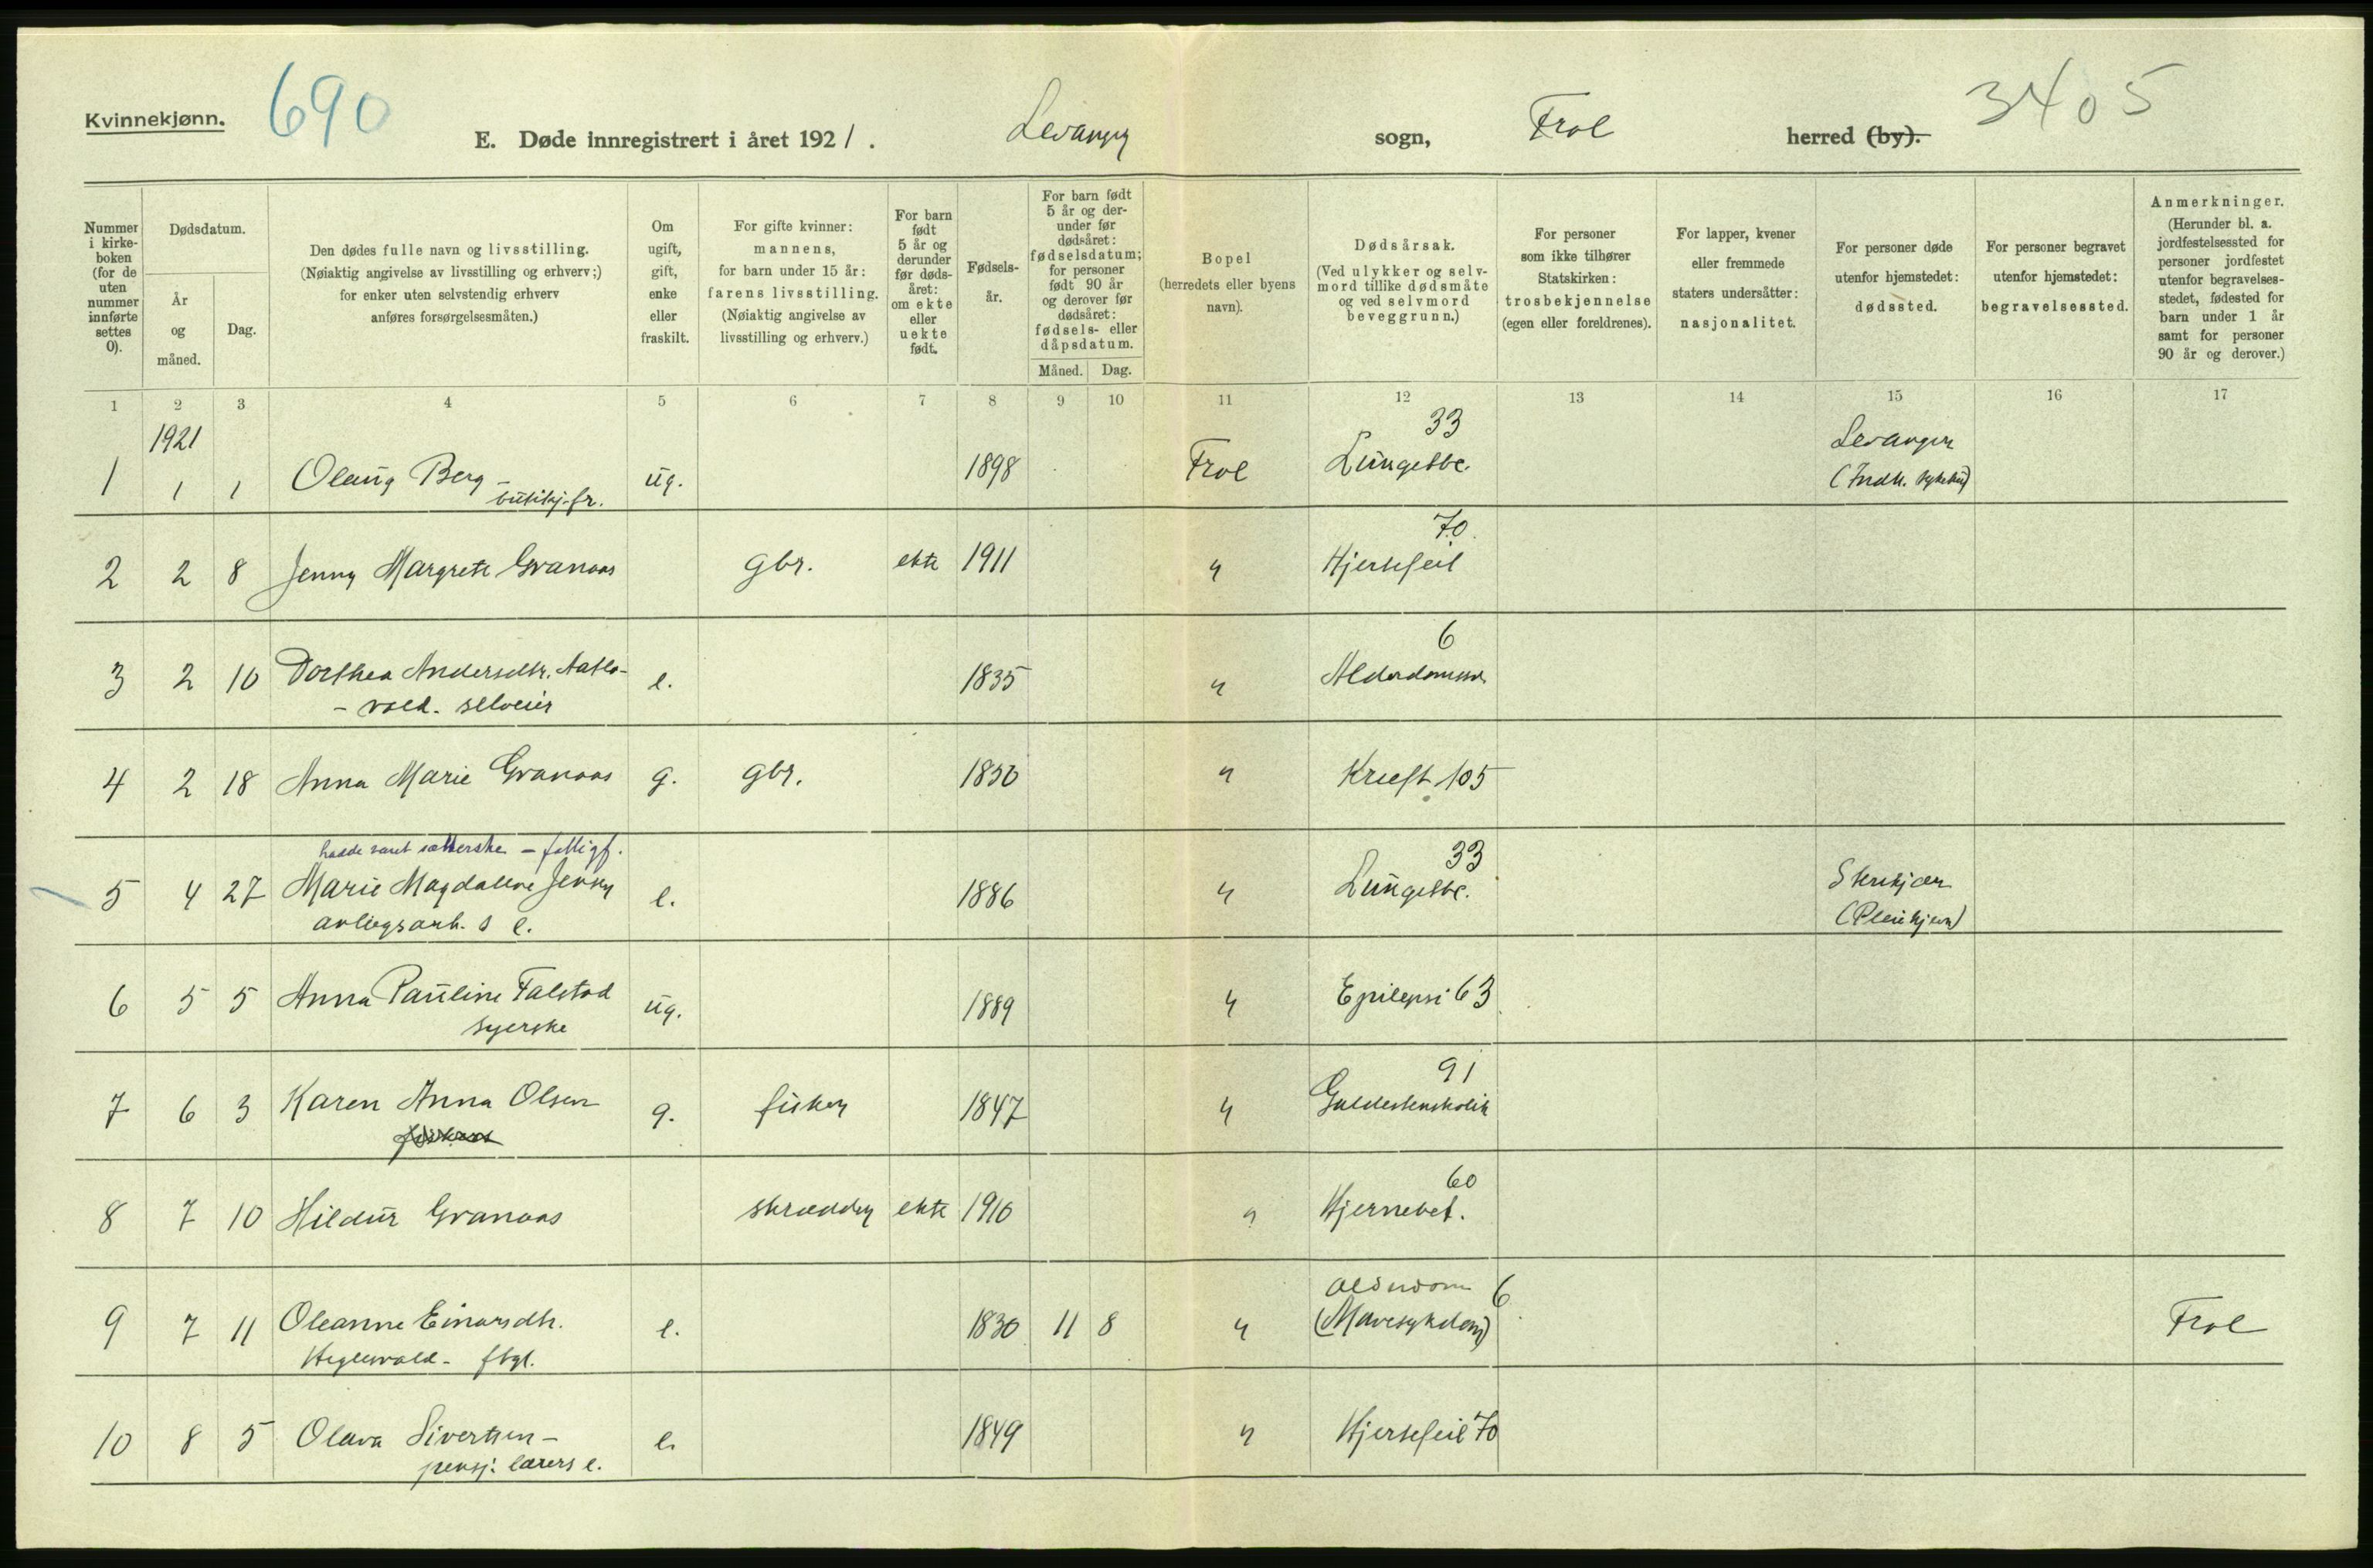 Kvinnekjønn.
690
E. Døde innregistrert i året 1921.
Levanger
sogn,
Frol
herred (by).
3405
Nummer i kirke- boken (for de uten nummer innførte settes 0).
Dødsdatum.
År og måned.
Dag.
Den dødes fulle navn og livsstilling.
(Nøiaktig angivelse av livsstilling og erhverv;)
for enker uten selvstendig erhverv
anføres forsørgelsesmåten.)
Om ugift, gift, enke eller fraskilt.
For gifte kvinner:
mannens,
for barn under 15 år:
farens livsstilling.
(Nøiaktig angivelse av
livsstilling og erhverv.)
For barn født 5 år og derunder før døds- året: om ekte eller uekte født.
Fødsels- år.
For barn født 5 år og der- under før dødsåret: fødselsdatum; for personer født 90 år og derover før dødsåret: fødsels- eller dåpsdatum.
Måned.
Dag.
Bopel
(herredets eller byens
navn).
Dødsårsak.
(Ved ulykker og selv-
mord tillike dødsmåte
og ved selvmord
beveggrunn.)
For personer
som ikke tilhører
Statskirken:
trosbekjennelse
(egen eller foreldrenes).
For lapper, kvener
eller fremmede
staters undersåtter:
nasjonalitet.
For personer døde
utenfor hjemstedet:
dødssted.
For personer begravet
utenfor hjemstedet:
begravelsessted.
Anmerkninger.
(Herunder bl. a.
jordfestelsessted for
personer jordfestet
utenfor begravelses-
stedet, fødested for
barn under 1 år
samt for personer
90 år og derover.)
1 2 3 4 5 6 7 8 9 10 11 12 13 14 15 16 17
1921 33 Levanger
1 1 1 Olaug Berg – ug. 1898 Frol Lungetbc.
butikkj.fr. (Indh. sykehus)
70
2 2 8 Jenny Margrete Granaas gbr. ekte 1911 " Hjertefeil
6
3 2 10 Dorthea Andersdtr. e. 1835 " Alderdomssv.
- vold. selveier
4 2 18 Anna Marie Granaas g. gbr. 1850 " Kreft 105
hadde vært – fattigf. 33
5 4 27 Marie Magdalene Jensen e. 1886 " Lungetbc. Steinkjær
anlegsarb. s e. (Pleiehjem)
6 5 5 Anna Pauline Falstad ug. 1889 " Epilepsi 63
syerske
91
7 6 3 Karen Anna Olsen g. fisker 1847 " Galdestenskolik
60
8 7 10 Hildur Granaas skrædder ekte 1910 " Hjernebet.
Alderdom 6
9 7 11 Oleanne Einarsdtr. e. 1830 11 8 " (Mavesykdom) Frol
fbgl.
10 8 5 Olava Sivertsen – e. 1849 " Hjertefeil 70
pensj. lærers e.